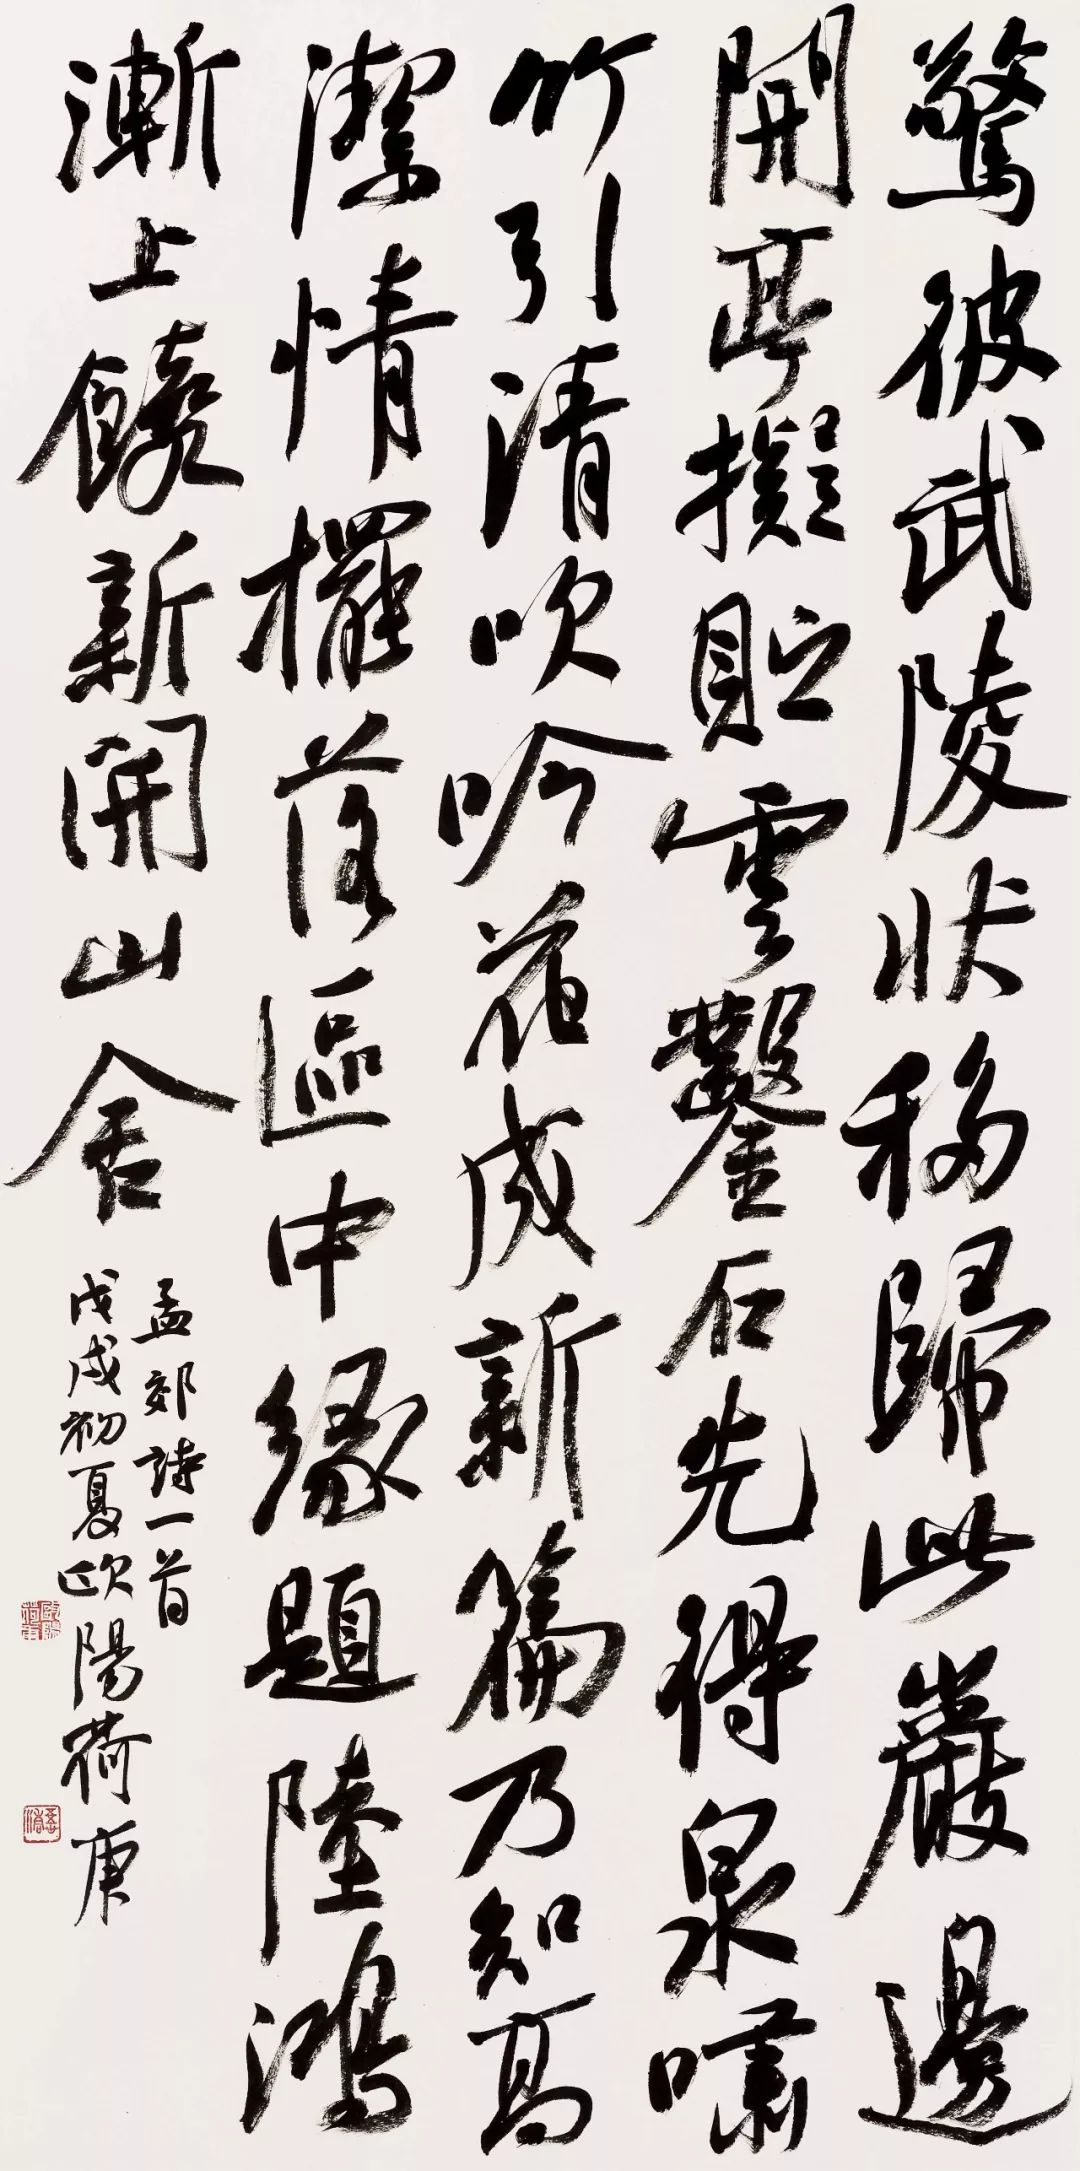 驚彼武陵狀移歸此巖邊
開亭擬貯雲鑿石先得泉嘯
竹引清吹吟花成新篇乃知高
潔情擺落區中緣題陸鴻
漸上饒新開山舍
孟郊詩一首
戊戌初夏歐陽荷庚